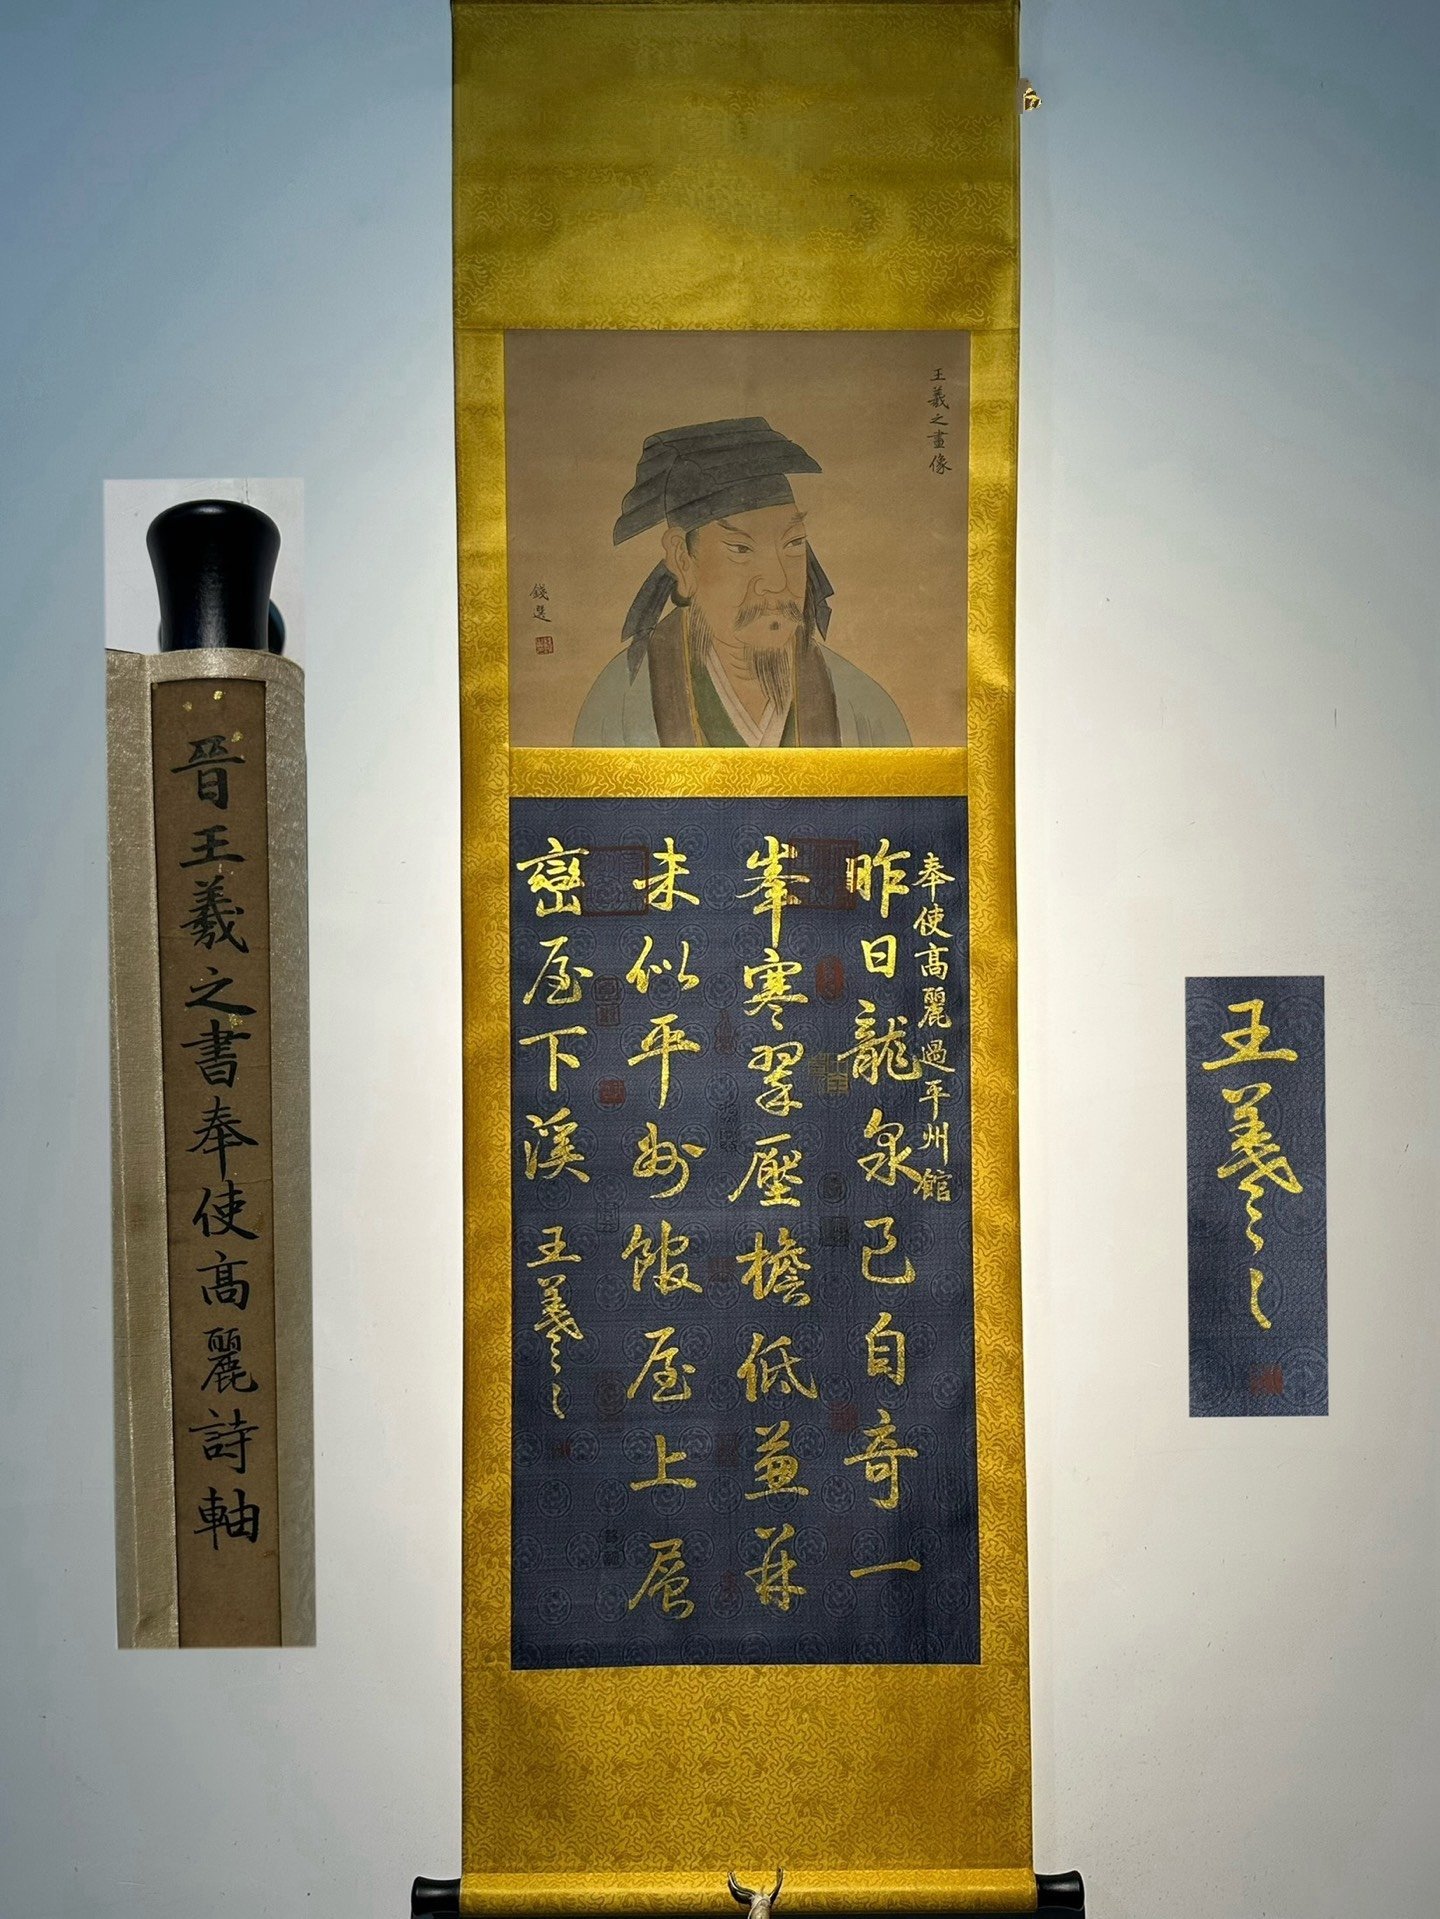 王羲之畫像
錢選
奉使高麗過平州館
昨日龍泉已自奇一
峯寒翠壓檐低兼并
未似平州館屋上層
巒屋下溪 王羲之
晉王羲之書奉使高麗詩軸
王羲之